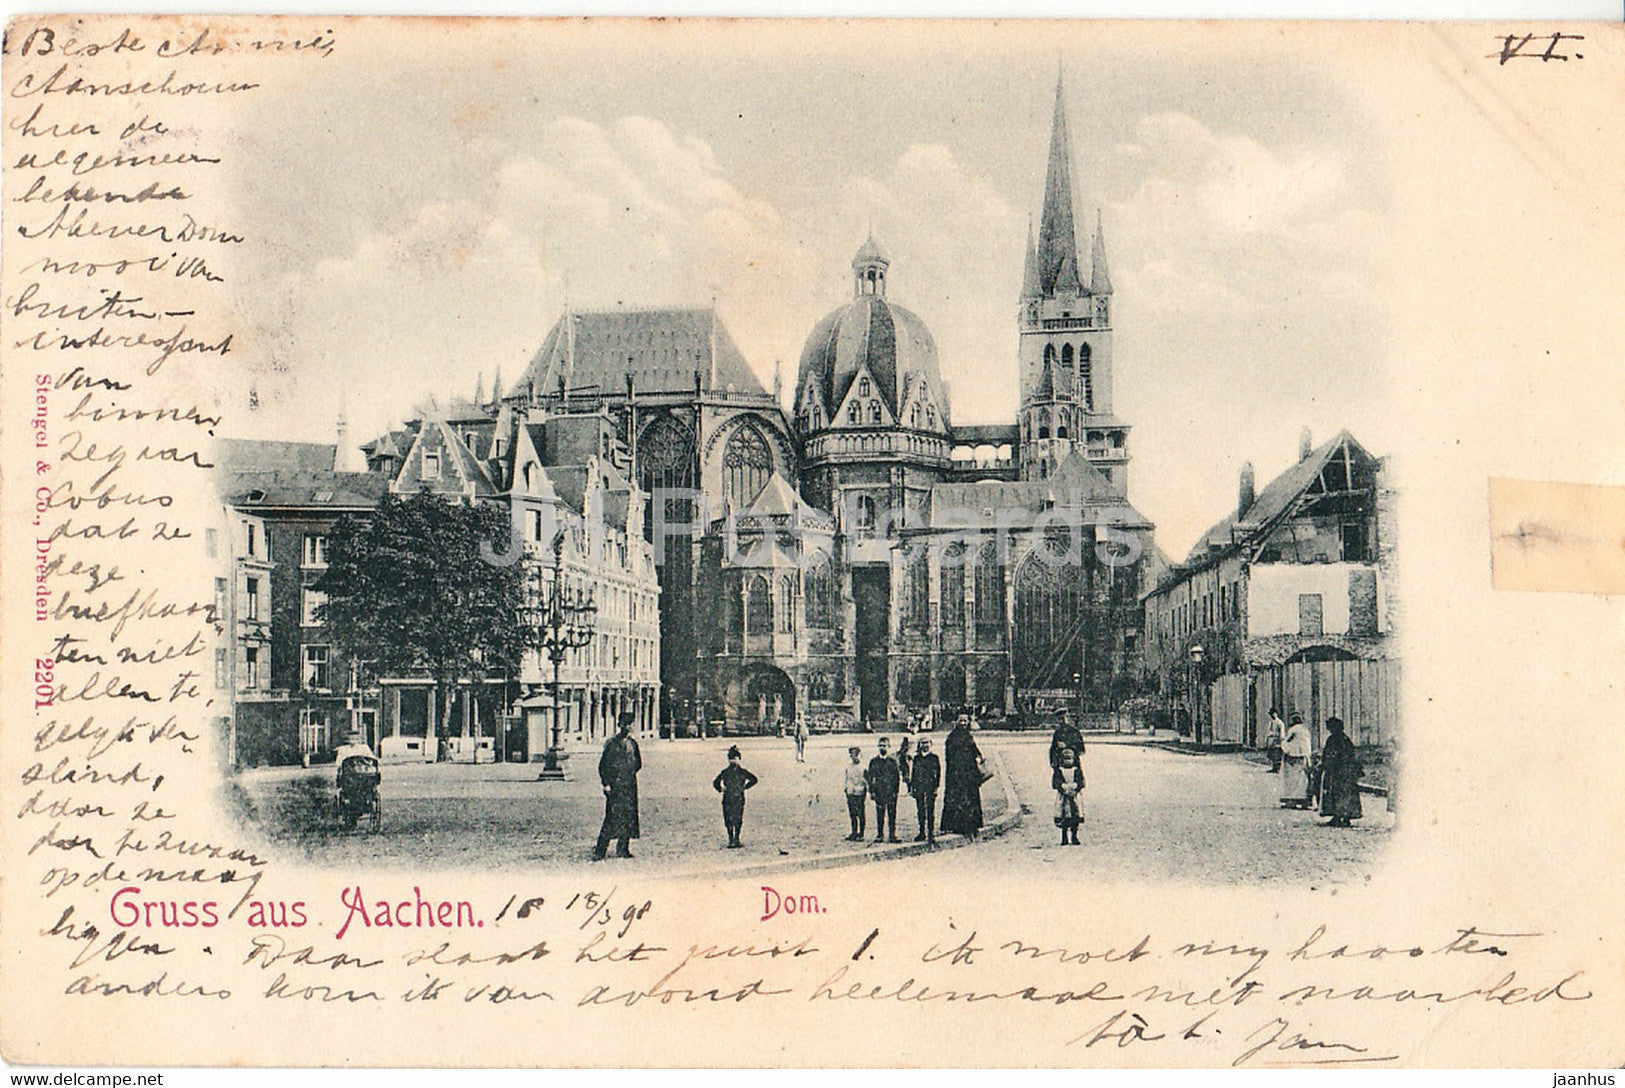 VI.
Beste
Aanschouw
hier de
algemeen
bekende
Akener Dom
mooi van
buiten –
interessant
van
binnen
Zeg aan
Cobus
dat ze
deze
briefkaar„
ten niet
allen te„
gelijk ver„
slind,
daar ze
dan te zwaar
op de maag
liggen. Daar slaat het juist 1. ik moet my haasten
anders kom ik van avond heelemaal niet naar bed
Jan
Stengel & Co., Dresden 2201.
Gruss aus Aachen. 18/3 98
Dom.
JH Postcards
jaanhus